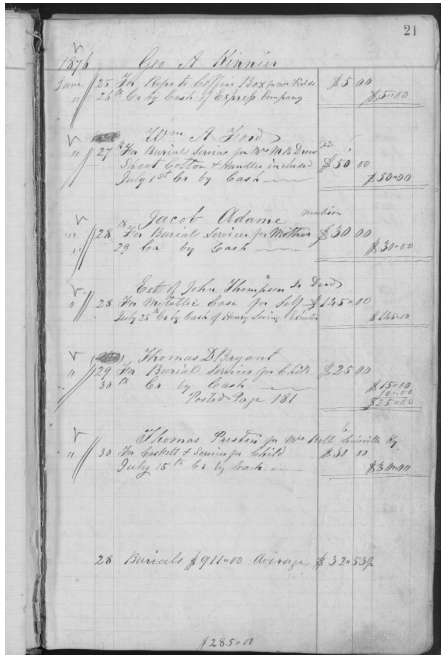 21
1876 Geo A Kinnier
June 25 For Repairs to Coffin Box $5 00
" 26th Cr by Cash of Express Company $5=00
Wm A Ford
" 27th For Burial Service for Mrs M B Drew
Sheet Cotton & Handles included $50 00
July 1st Cr by Cash $50=00
Jacob Adams Madison
" 28th For Burial Service for Mother $30 00
" 29 Cr by Cash $30=00
Est of John Thompson Sr Decd
" 28 For Metallic Case for Self $145=00
July 25th Cr by Cash of Henry $145=00
Thomas D Bryant
" 29 For Burial Service for Child $25 00
" 30th Cr by Cash $15=00
Posted Page 181 10=00
$25=00
Thomas Preston for Mrs Louisville Ky
" 30 For Caskett & Service for Child $30 00
July 15th Cr by Cash $30=00
28 Burials $911=00 Average $32=53½
$285=00